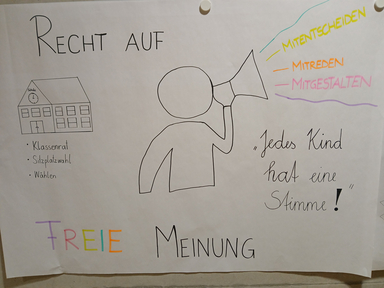 RECHT AUF
MITENTSCHEIDEN
MITREDEN
MITGESTALTEN
• Klassenrat
• Sitzplatzwahl
• Wählen
„Jedes Kind
hat eine
Stimme!"
FREIE MEINUNG